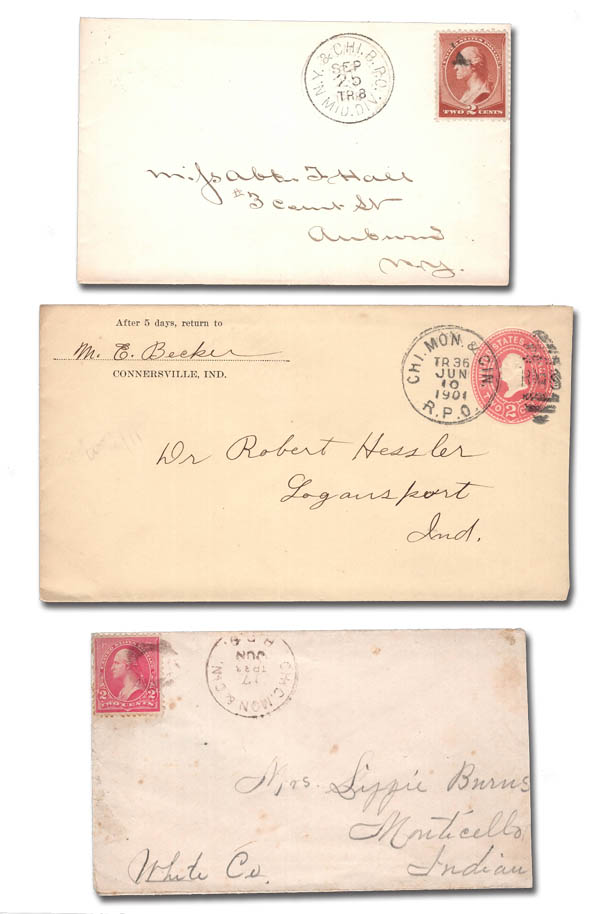 N.Y. & CHI. R.P.O.
SEP
25
TR.8
MID. DIV.
TWO 2 CENTS
Miss Abbie F Hall
#3 Court St
Auburn
N.Y.
After 5 days, return to
M. E. Becker
CONNERSVILLE, IND.
CHI. MON. & CIN.
TR 36
JUN
10
1901
R.P.O.
STATES
TWO 2
Dr Robert Hessler
Logansport
Ind.
2 2
TWO CENTS
CHIC. MON & CIN.
TR33
17
JUN
Mrs. Lizzie Burns
Monticello
Indian
White Co.